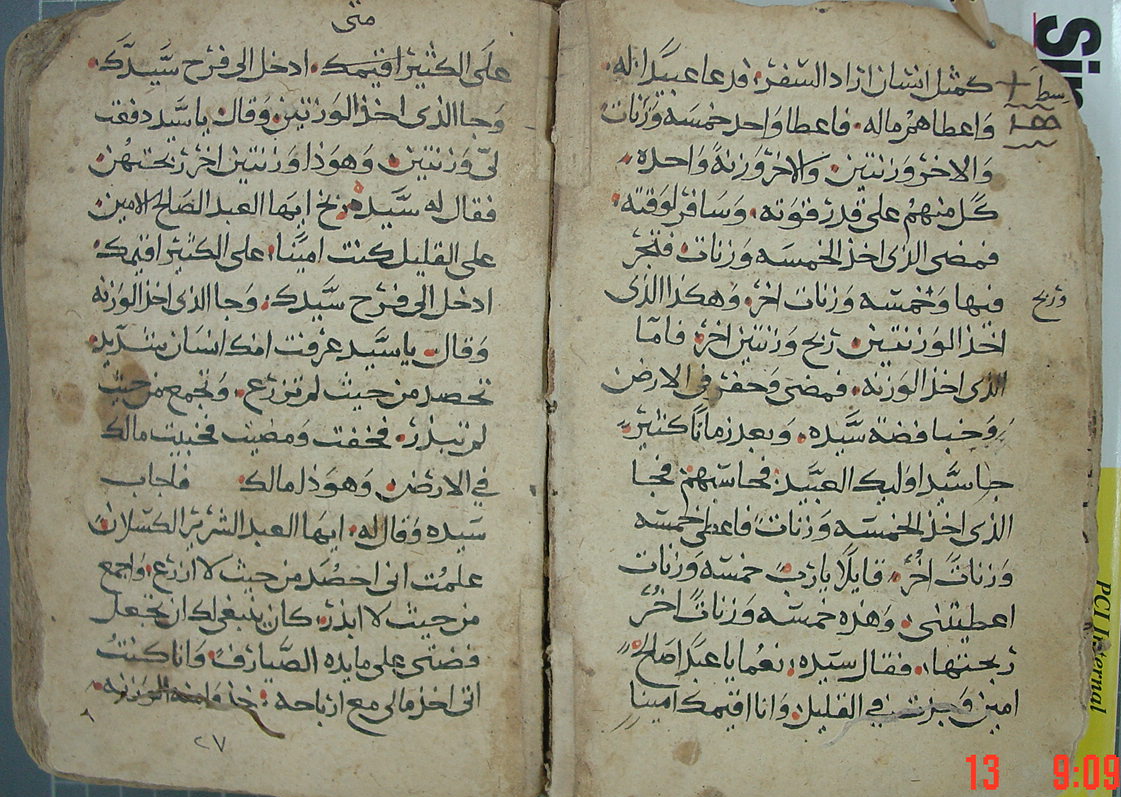 كمثل انسان اراد السفر، فدعا عبيدا له
واعطاهم ماله. فاعطا واحد خمسه وزنات
والاخر وزنتين. والاخر وزنة واحده
كل منهم على قدر قوته. وسافر لوقته
فمضى الذى اخذ الخمسه وزنات. فتجر
فيها وخمسه وزنات اخر. وهكذا الذى
اخذ الوزنتين ربح وزنتين اخر. فاما
الذى اخذ الوزنه. فمضى وحفر فى الارض
وخبا فضة سيده. وبعد زمانا كثير
جا سيد اوليك العبيد. فحاسبهم فجا
الذى اخذ الخمسه وزنات فاعطى خمسه
وزنات اخر. قايلا يارب خمسه وزنات
اعطيتنى. وهذه خمسه وزنات اخر
ربحتها. فقال سيده. نعما يا عبدا صالح
امين وجدت فى القليل. وانا اقيمك امينا
وربح
متى
على الكثير اقيمك. ادخل الى فرح سيدك.
وجا الذى اخذ الوزنتين. وقال ياسيد دفعت
لى وزنتين. وهوذا وزنتين اخر ربحتهن
فقال له سيده بخ ايها العبد الصالح الامين
على القليل كنت امينا. على الكثير اقيمك
ادخل الى فرح سيدك. وجا الذى اخذ الوزنه
وقال ياسيد عرفت انك انسان شديد.
تحصد من حيث لم تزرع. وتجمع من حيث
لم تبذر. فخفت ومضيت فخبيت مالك
فى الارض. وهوذا مالك. فاجاب
سيده وقال له. ايها العبد الشرير الكسلان
علمت انى احصد من حيث لا ازرع. واجمع
من حيث لا ابذر. كان ينبغى لك ان تجعل
فضتى على مايده الصيارف. وانا كنت
اتى اخذ مالى مع ارباحه. خذوا منه الوزنه.
٢٧
PCI Internal
13 9:09